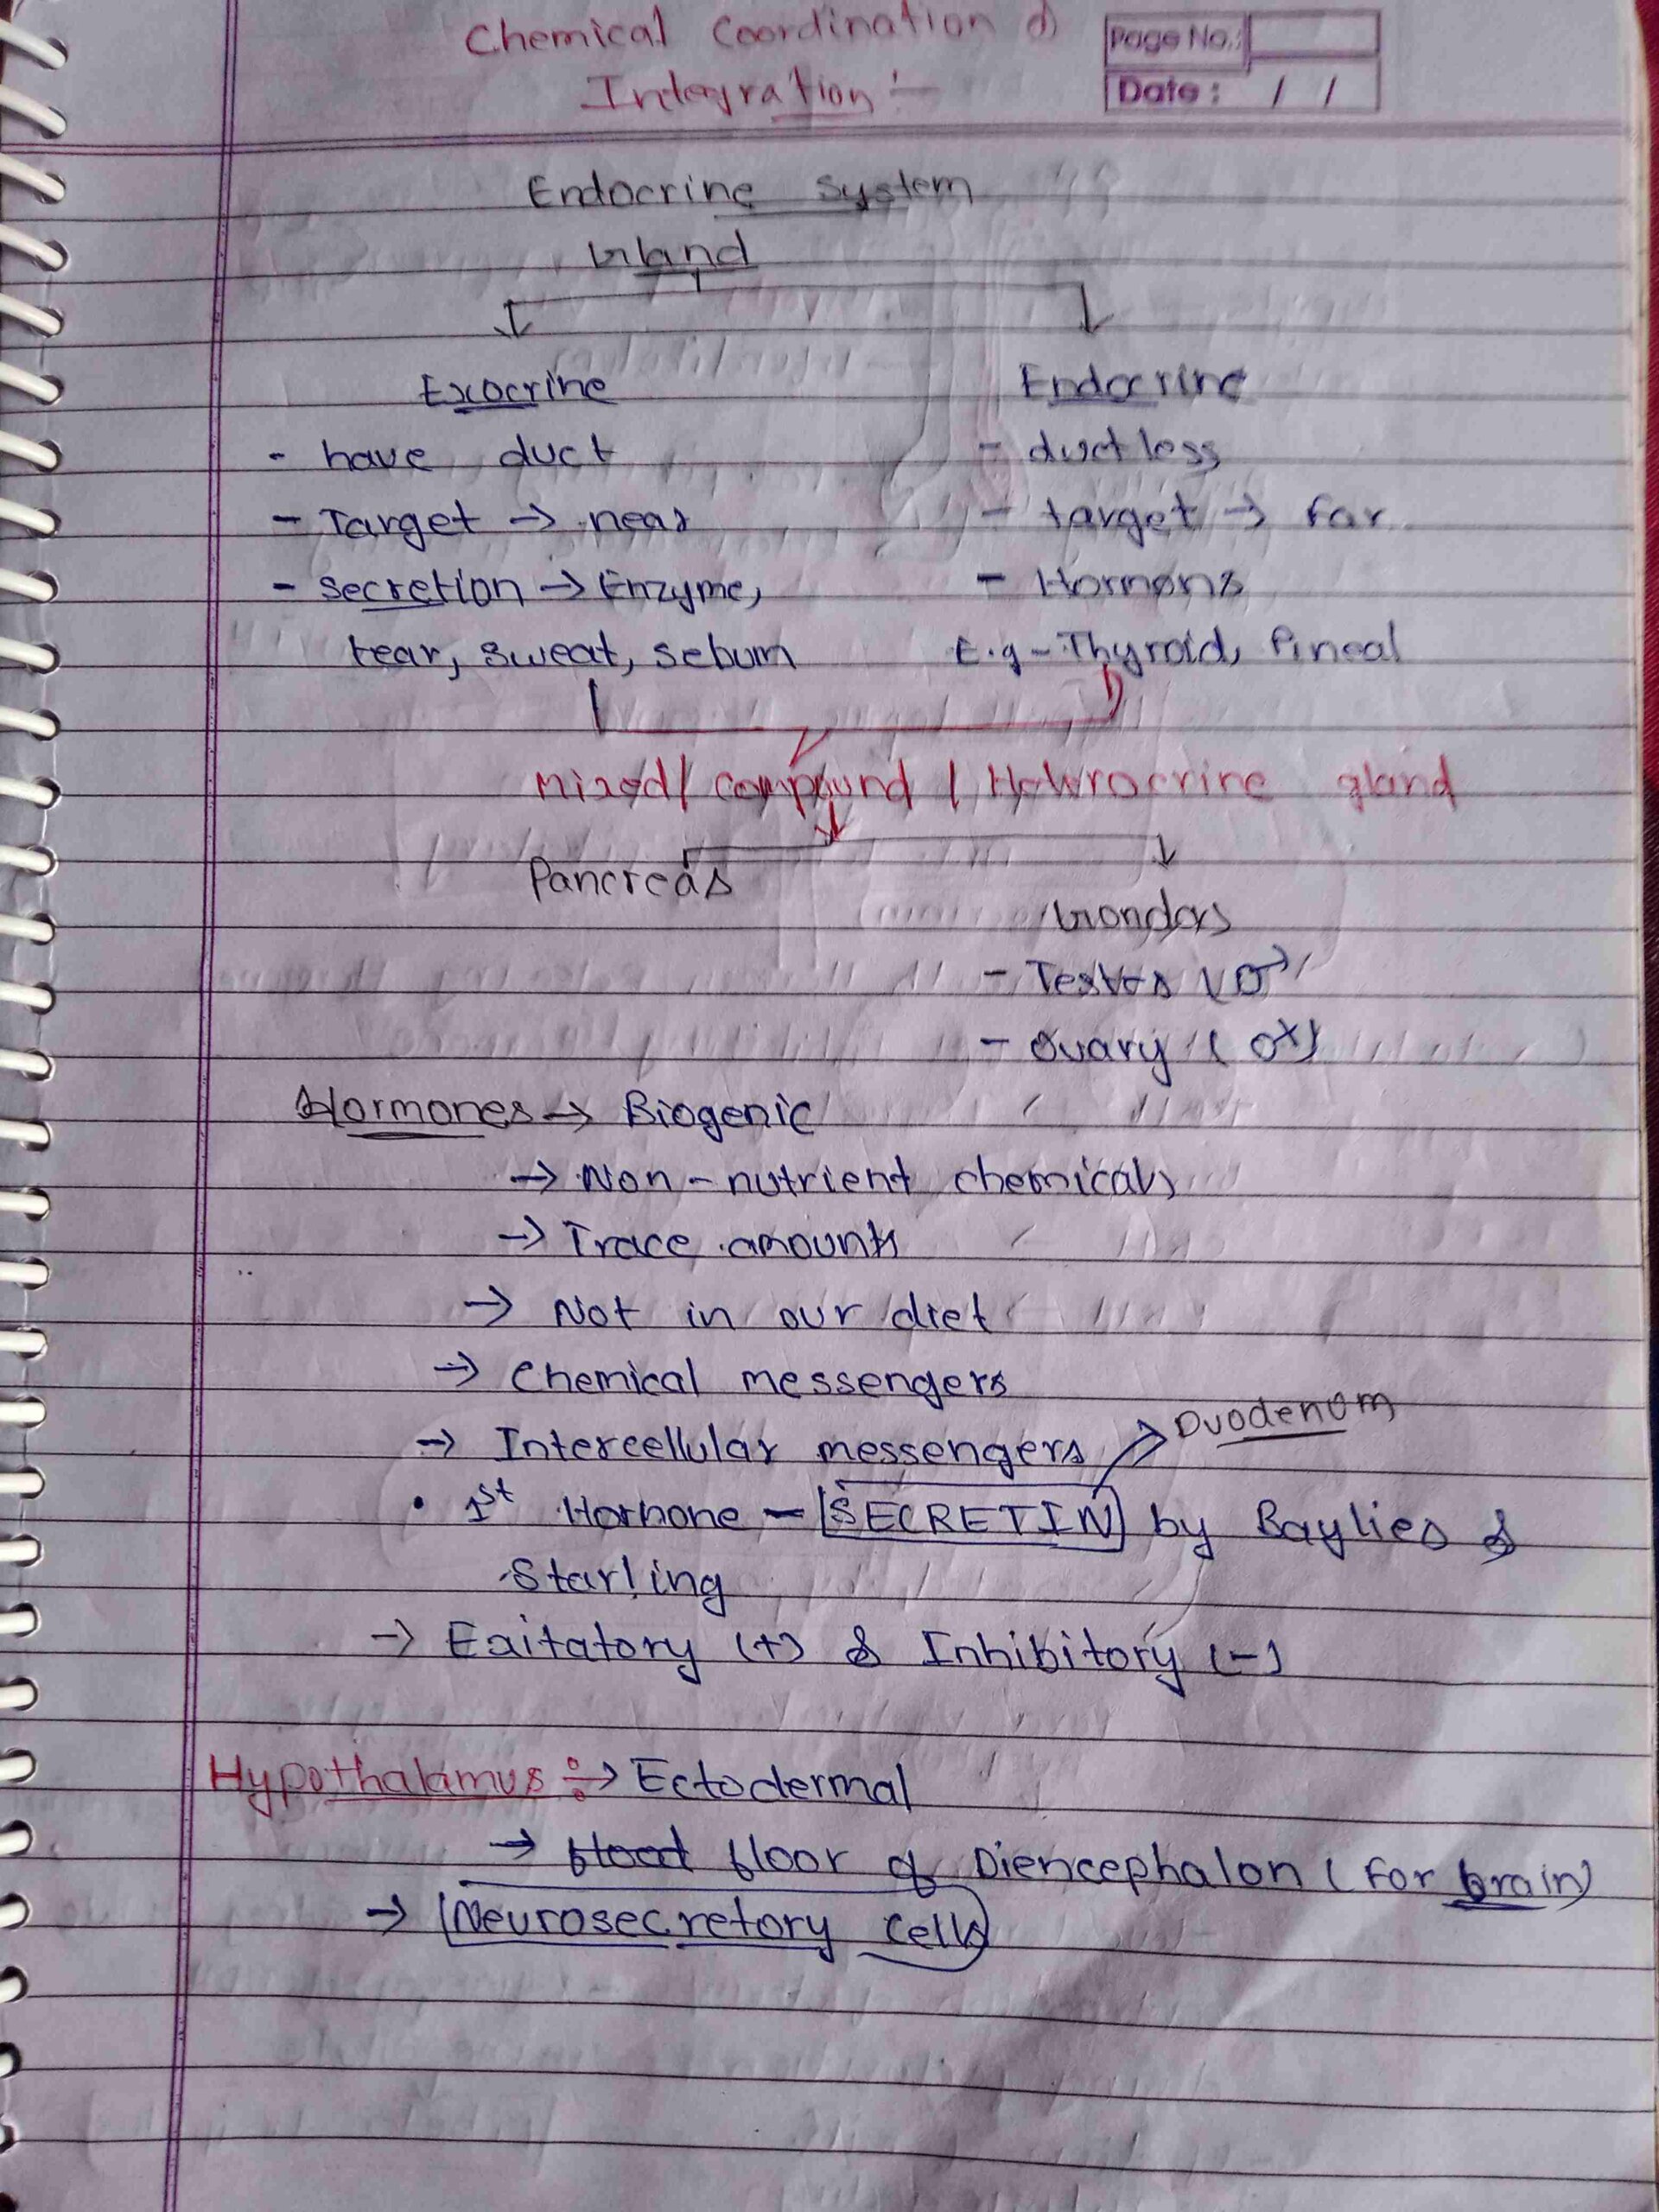 Chemical Coordination &
Integration :-
Page No.:
Date : / /
Endocrine System
Gland
Exocrine
Endocrine
- have duct
- ductless
- Target → near
- target → far
- secretion → Enzyme,
- Hormons
tear, sweat, sebum
E.g - Thyroid, Pineal
Mixed / Compound / Hetrocrine gland
Pancreas
Gondas
- Testes (♂)
- Ovary (♀)
Hormones → Biogenic
→ Non-nutrient chemicals
→ Trace amounts
→ Not in our diet
→ Chemical messengers
→ Intercellular messengers
Duodenum
• 1st Hormone - SECRETIN by Baylies &
Starling
→ Exitatory (+) & Inhibitory (-)
Hypothalamus :→ Ectodermal
→ floor of Diencephalon (for brain)
→ Neurosecretory cells